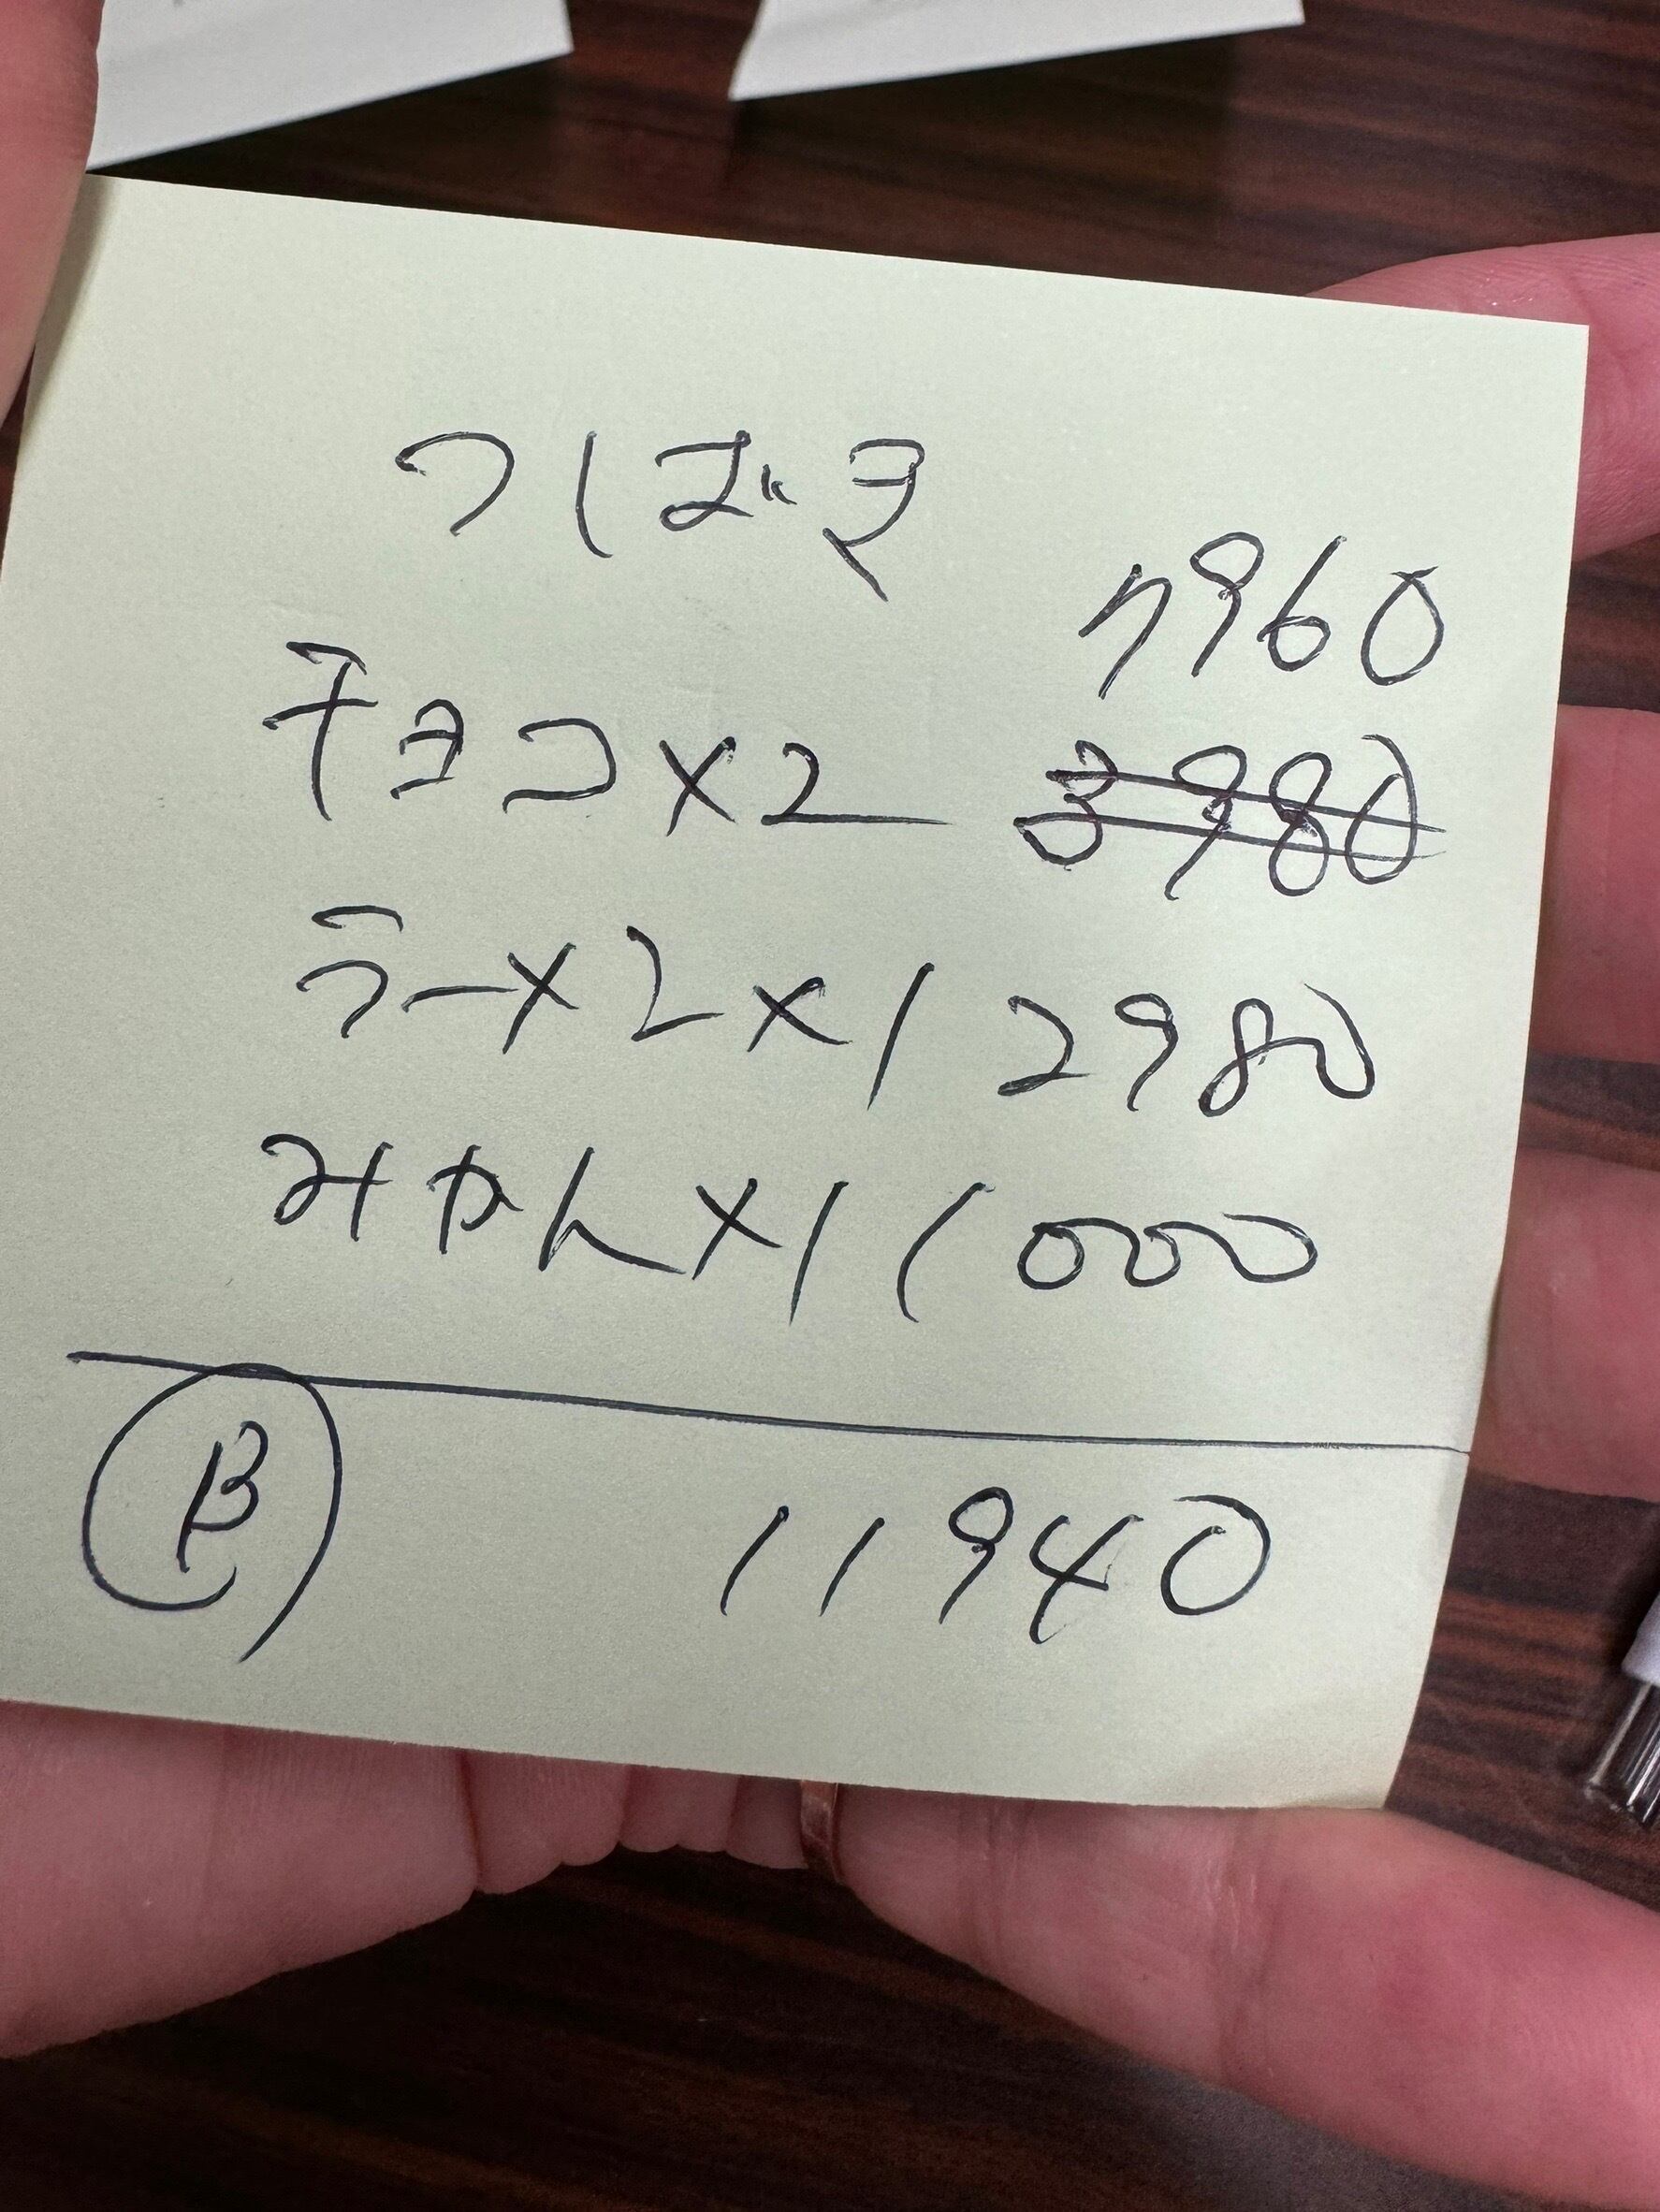 つばさ
7960
チョコ×2 3980
ラーメン×1 2980
みかん×1 1000
β 11940